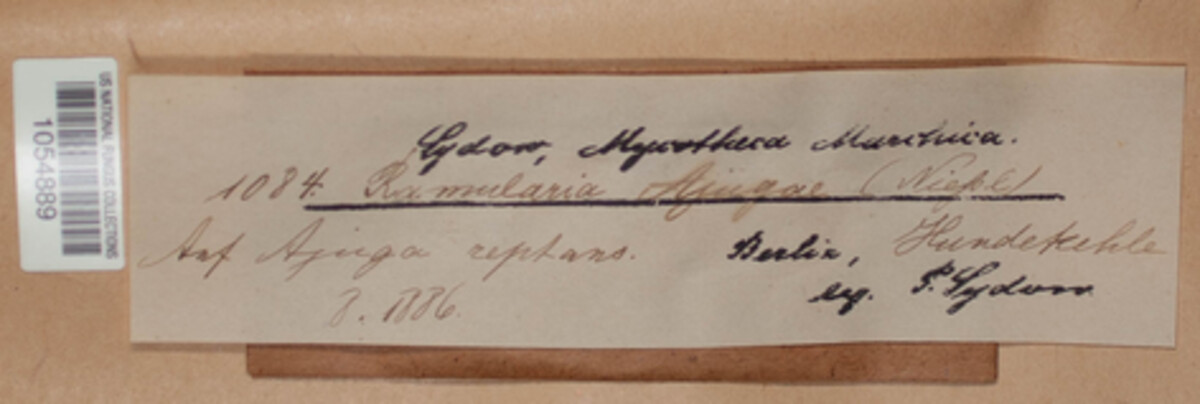 US NATIONAL FUNGUS COLLECTIONS
1054889
Sydow, Mycotheca Marchica.
1084. Ramularia Ajugae (Niessl)
Auf Ajuga reptans. Berlin, Hundekehle
8. 1886. leg. P. Sydow